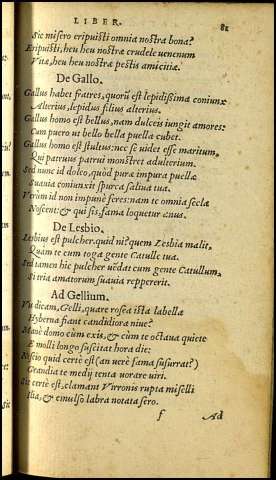 LIBER. 81
Sic misero eripuisti omnia nostra bona?
Eripuisti, heu heu nostræ crudele uenenum
Vitæ, heu heu nostræ pestis amicitiæ.
De Gallo.
Gallus habet fratres, quorū est lepidißima coniunx
Alterius, lepidus filius alterius.
Gallus homo est bellus, nam dulceis iungit amores:
Cum puero ut bello bella puella cubet.
Gallus homo est stultus: nec se uidet esse maritum,
Qui patruus patrui monstret adulterium.
Sed nunc id doleo, quòd puræ impura puellæ
Suauia coniunxit spurca saliua tua.
Verùm id non impunè feres: nam te omnia secla
Noscent: & qui sis, fama loquetur anus.
De Lesbio.
Lesbius est pulcher, quid ni? quem Lesbia malit,
Quàm te cum toga gente Catulle tua.
Sed tamen hic pulcher uēdat cum gente Catullum,
Si tria amatorum suauia reppererit.
Ad Gellium.
Quid dicam, Gelli, quare rosea ista labella
Hyberna fiant candidiora niue?
Manè domo cūm exis, & cūm te octaua quiete
E molli longo suscitat hora die:
Nescio quid certè est (an uerè fama susurrat?)
Grandia te medij tenta uorare uiri.
Sic certè est, clamant Virronis rupta miselli
Ilia, & emulso labra notata sero.
f Ad